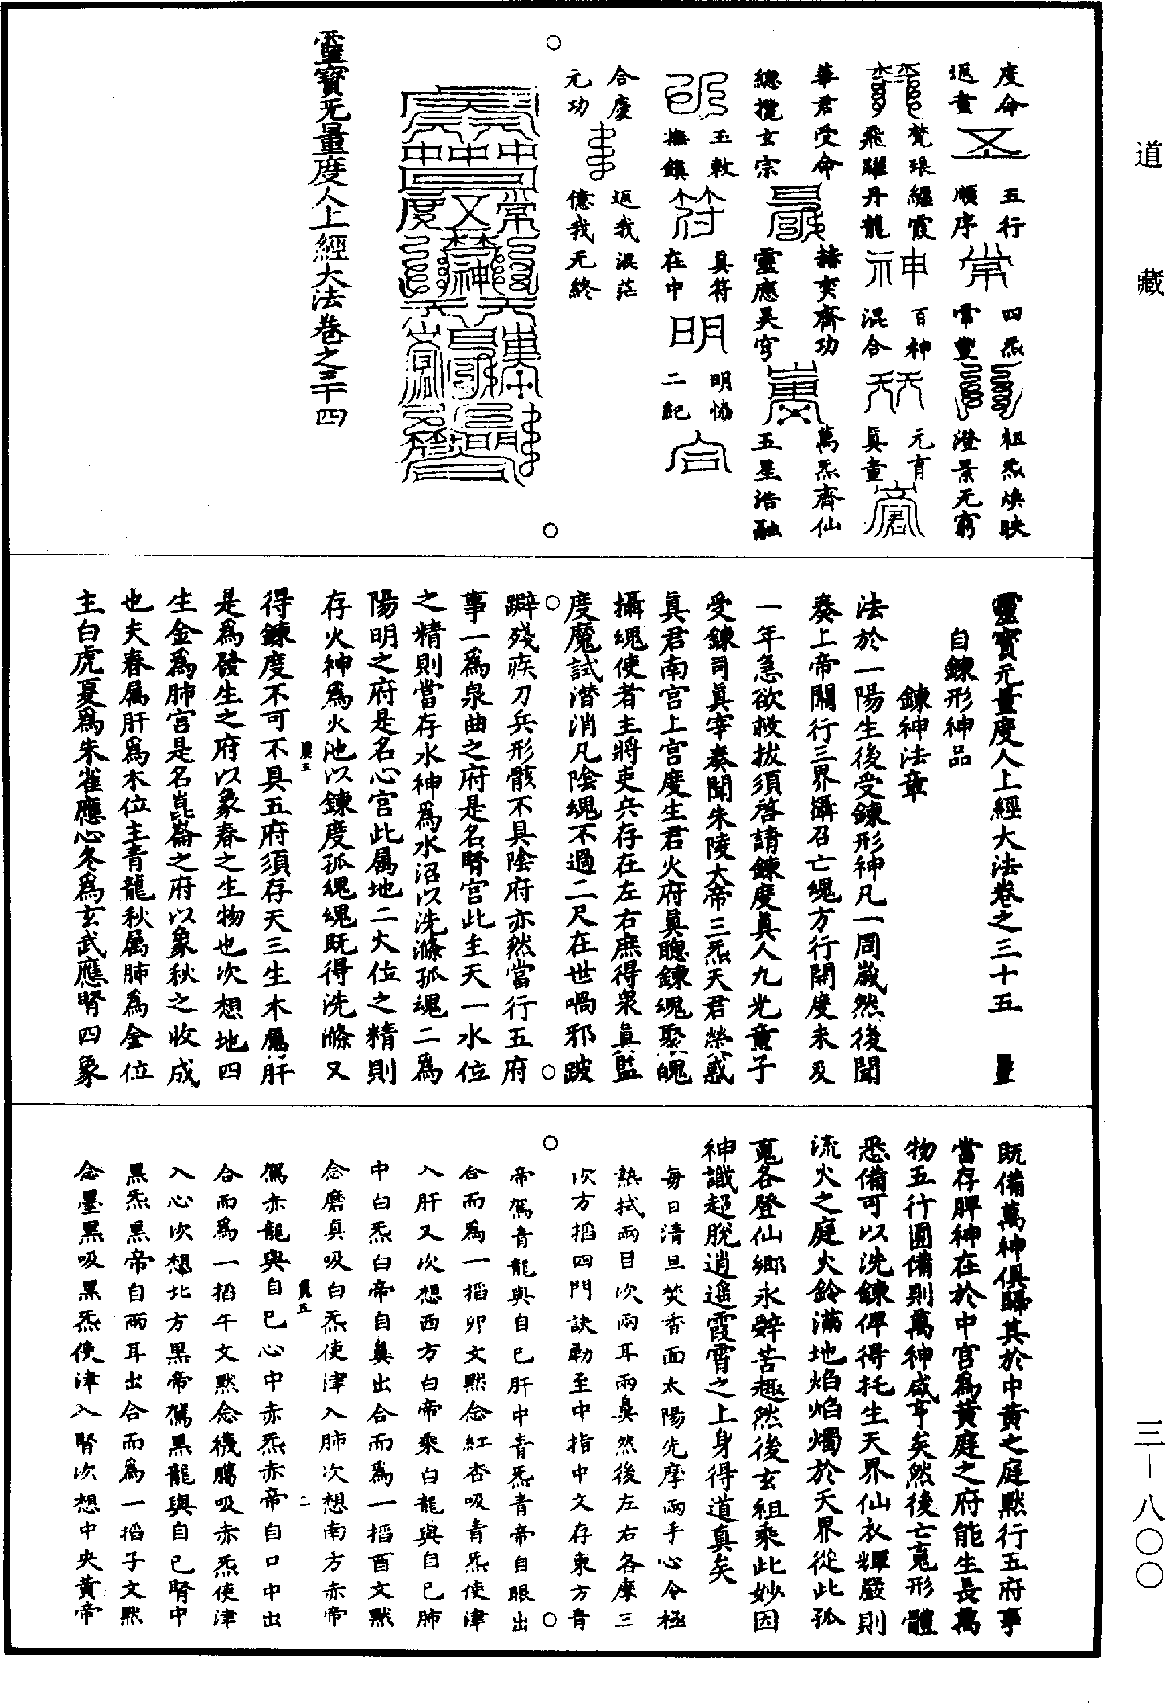 道藏
三—八〇〇
度命
返晝
五行
順序
四炁
常豐
祖炁煥映
澄景无窮
梵琅繼霞
飛躍丹龍
百神
混合
元育
真童
華君受命
總攬玄宗
赫奕齊功
靈應昊穹
萬炁齊仙
五星浩融
玉敕
撫鎮
真符
在中
明協
二紀
合慶
元功
返我混茫
億我无終
靈寶无量度人上經大法卷之三十四
靈寶无量度人上經大法卷之三十五
自鍊形神品
鍊神法章
法於一陽生後受鍊形神凡一周歲然後聞
奏上帝開行三界攝召亡魂方行開度未及
一年急欲救拔須啓請鍊度真人九光童子
受鍊司真宰奏聞朱陵大帝三炁天君熒惑
真君南宮上宮度生君火府真聰鍊魂聚魄
攝魂使者主將吏兵存在左右庶得衆真監
度魔試潛消凡陰魂不過二尺在世喎邪跛
躃殘疾刀兵形骸不具陰府亦然當行五府
事一為泉曲之府是名腎宮此主天一水位
之精則當存水神為水沼以洗滌孤魂二為
陽明之府是名心宮此属地二大位之精則
存火神為火池以鍊度孤魂魂既得洗滌又
得鍊度不可不具五府須存天三生木屬肝
是為發生之府以象春之生物也次想地四
生金為肺宮是名崑崙之府以象秋之收成
也夫春属肝為木位主青龍秋属肺為金位
主白虎夏為朱雀應心冬為玄武應腎四象
既備萬神俱歸其於中黃之庭默行五府事
當存脾神在於中宮為黃庭之府能生長萬
物五行圓備則萬神咸亨矣然後亡䰟形體
悉備可以洗鍊俾得托生天界仙衣輝嚴則
流火之庭火鈴滿地焰焰燭於天界從此孤
䰟各登仙鄉永辭苦趣然後玄祖乘此妙因
神識超脫逍遙霞霄之上身得道真矣
每日清旦焚香面太陽先摩兩手心令極
熱拭兩目次兩耳兩鼻然後左右各摩三
次方搯四門訣勒至中指中文存東方青
帝駕青龍與自己肝中青炁青帝自眼出
合而為一搯卯文默念紅杏吸青炁使津
入肝又次想西方白帝乘白龍與自己肺
中白炁白帝自鼻出合而為一搯酉文默
念磨真吸白炁使津入肺次想南方赤帝
駕赤龍與自己心中赤炁赤帝自口中出
合而為一搯午文默念機關吸赤炁使津
入心次想北方黑帝駕黑龍與自己腎中
黑炁黑帝自兩耳出合而為一搯子文默
念墨黑吸黑炁使津入腎次想中央黃帝